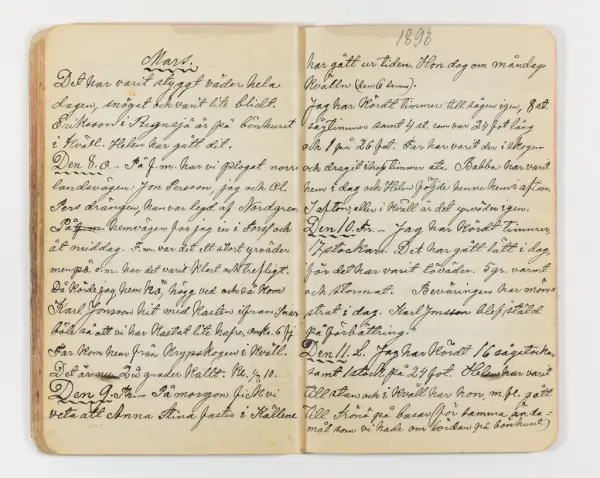 Mars.
Det har varit styggt väder hela
dagen, snögat och varit lite blidt.
Eriksson i Rugnsjö är på bönhuset
i kväll. Helen har gått dit.
Den 8. O. – På f.m. har vi plogat norra
landsvägen: Jon Persson, jag och Ol.
Pers drängen, han var legd af Nordgren
På hemvägen for jag in i Forsf och
åt middag. F.m. var det ett stort yrväder
men på e.m. har det varit klart och trefligt.
Då körde jag hem hö, högg ved och så kom
Karl Jonsson hit med hästen ifrån Snar
böle så att vi har hästat lite hafre, omkr. 6 tj
Far kom hem från Krypskogen i kväll.
Det är nu 20 grader kallt. Kl. ½ 10.
Den 9. Th. – På morgon fick vi
veta att Anna Stina Fastes i Källene
1893
har gått ur tiden. Hon dog om måndags
kvälln (den 6 dennes).
Jag har kördt timmer till sågen igen, 8 st.
sågtimmer samt 4 st. som var 24 fot lång
och 1 på 26 fot. Far har varit der i skogen
och dragit ihop timmer åt
Babba har varit
hem i dag och Helen följde henne hem i afton.
I afton, eller i kväll är det yrväder igen.
Den 10. Fr. – Jag har kördt timmer,
17 stockar. Det har gått lätt i dag,
för det har varit töväder. 5 gr. varmt
och stormat. Beväringen har möns-
trat i dag. Karl Jonsson blef ställd
på förbättring.
Den 11. L. Jag har kördt 16 sågstockar
samt 1 stock på 24 fot. Helen har varit
till stan och i kväll har hon, m.fl. gått
till Körö på basar (för samma ända-
mål som vi hade om lördan på bönhuset)